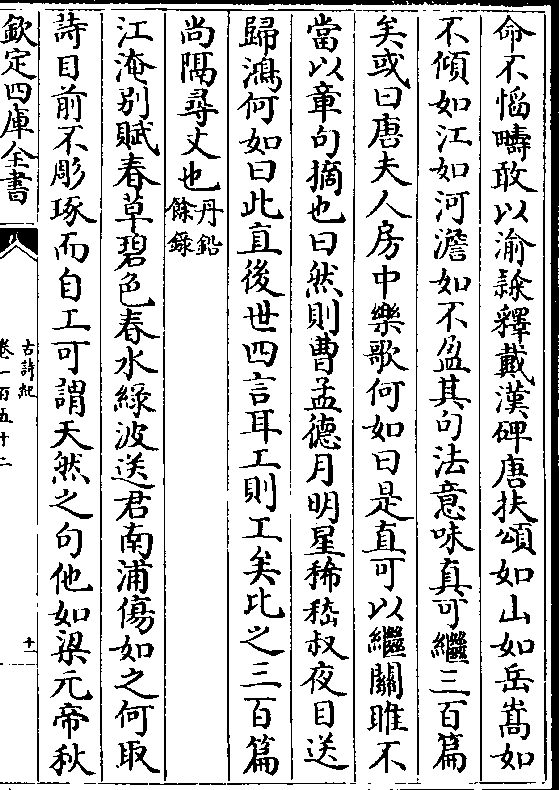 命不慆疇敢以渝詠釋戴漢碑唐扶頌如山如岳嵩如
不傾如江如河澹如不盈其句法意味真可繼三百篇
矣或曰唐夫人房中樂歌何如曰是直可以繼關雎不
當以章句摘也曰然則曹孟德月明星稀嵇叔夜目送
歸鴻何如曰此直後世四言耳工則工矣比之三百篇
尚隔尋丈也丹鉛
餘錄
江淹别賦春草碧色春水緑波送君南浦傷如之何取
詩目前不彫琢而自工可謂天然之句他如梁元帝秋
欽定四庫全書
古詩紀
卷一百五十二
十